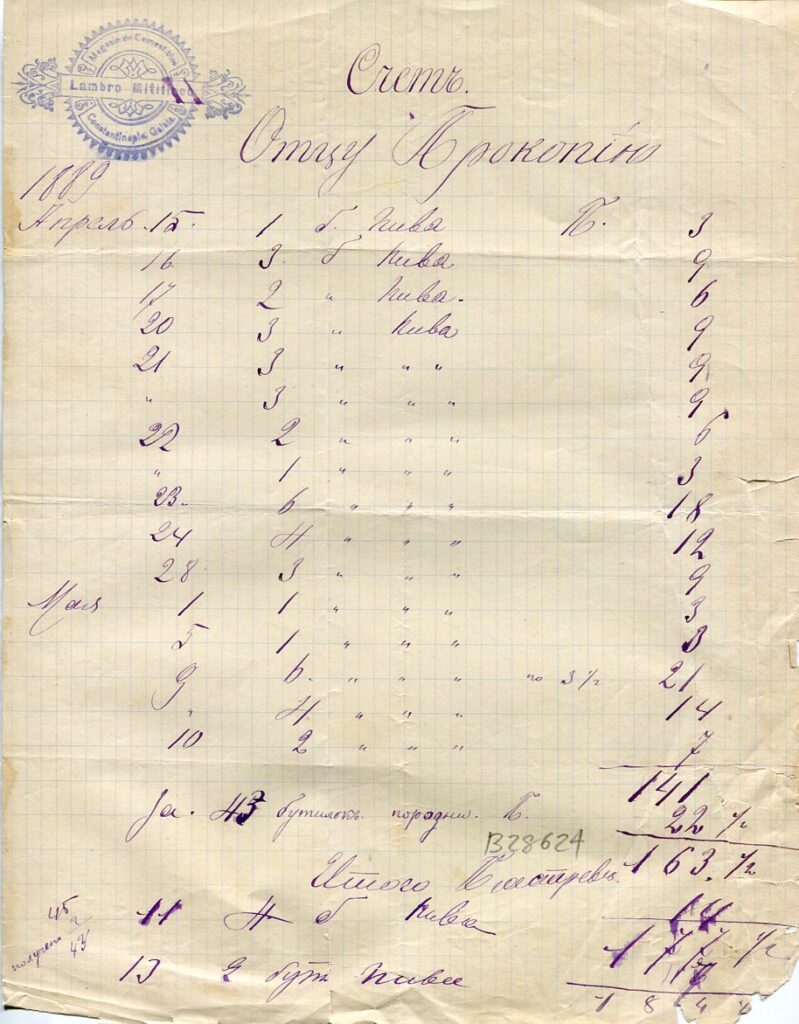 Magasin de Comestibles
Lambro Mitil
Constantinople, Galata
Счетъ.
Отцу Прокопію
1889
Апрель. 15 1 б. пива П. 3
16 3. б пива 9
17 2 " пива. 6
20 3 " пива 9
21 3 " " " 9
" 3 " " " 9
22 2 " " " 6
" 1 " " " 3
23. 6 " " " 18
24 4 " " " 12
28 3 " " " 9
Мая 1 1 " " " 3
5 1 " " " 3
9 6. " " " по 3 1/2 21
" 4 " " " 14
10 2 " " " 7
141
За. 43 бутилокъ. П.
22 1/2
B28624
Итого Піастревъ 163. 1/2
11 4 б пива 14
177 1/2
45
2
43
13 2 бут пива 7
184